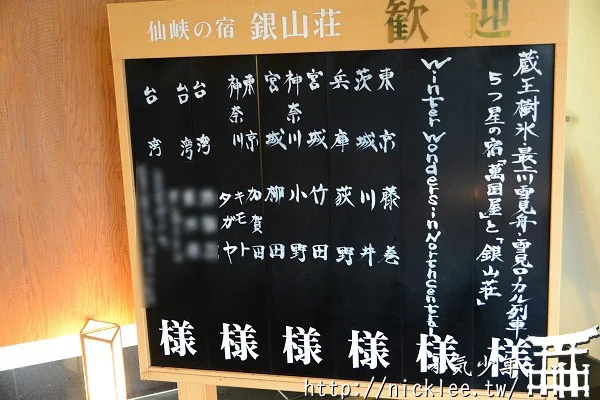 仙峡の宿 銀山荘 歓迎
蔵王樹氷・最上川雪見舟・雪見ローカル列車
5つ星の宿「萬国屋」と「銀山荘」
Winter Wonders in North Central
様
東京 藤巻
茨城 川井
様
兵庫 荻野
宮城 竹田
様
神奈川 小野
宮城 柳田
様
東京 加賀田
神奈川 キモト
タガヤ
様
台湾
台湾
台湾
様
http://nicklee.tw/